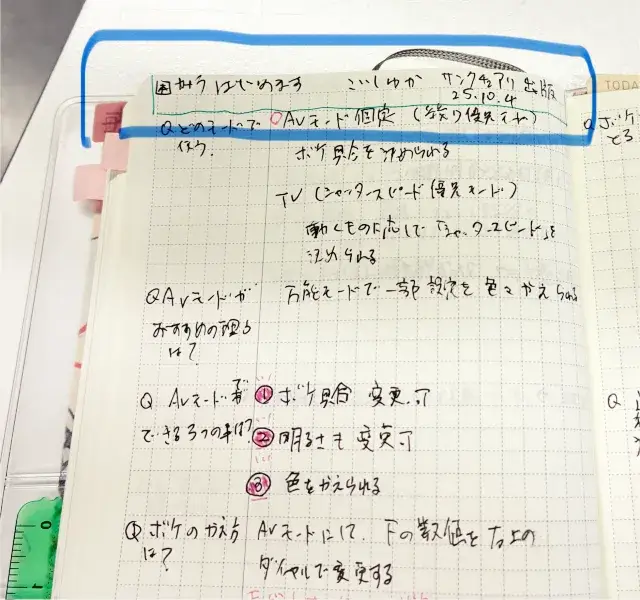 カメラはじめます こいしゆか サンクチュアリ出版
25.10.4
Qどのモードで
使う.
AVモード 固定 (絞り優先モード)
ボケ具合を決められる
TV (シャッタースピード優先モード)
動くものに応じて「シャッタースピード」を
決められる
QAVモードが
おすすめの理由
は?
万能モードで一部設定を色々かえられる
Q AVモードで
できる3つの事は?
① ボケ具合 変更可
② 明るさも変更可
③ 色をかえられる
Q ボケのかえ方
は?
AVモードにて、Fの数値を右上の
ダイヤルで変更する
TODA
Q ボケ
とる
Q
0
1